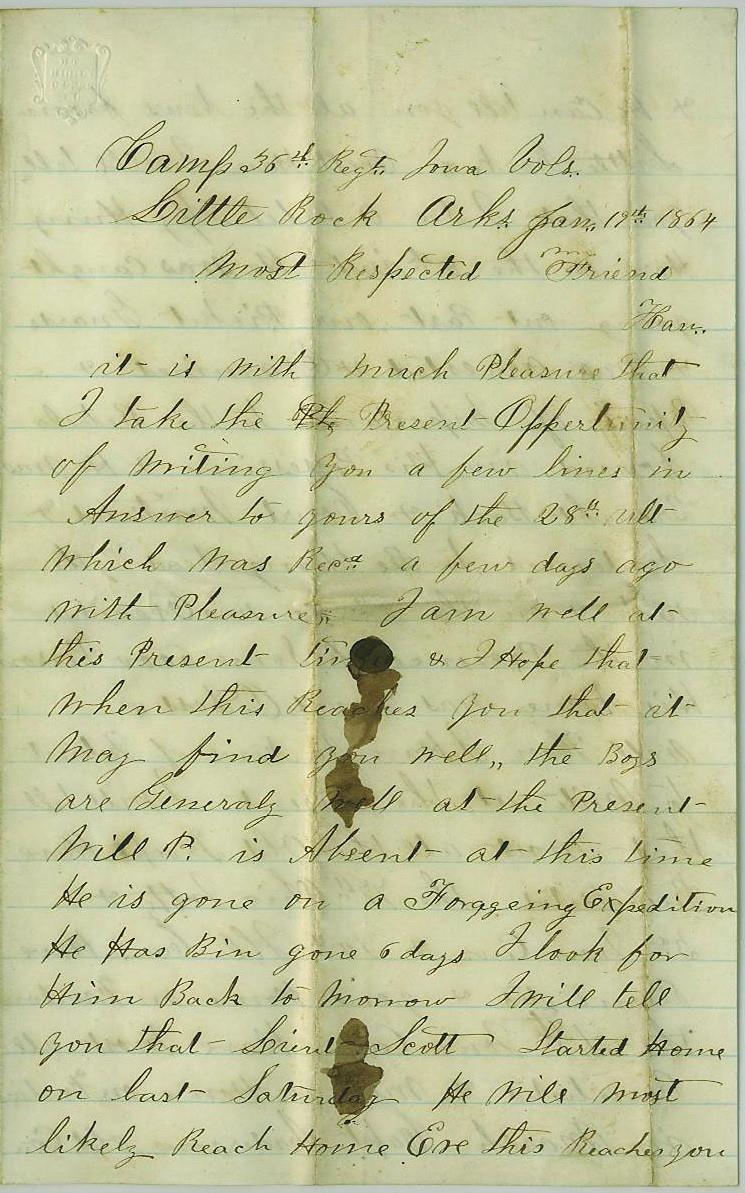 Camp 36th Regt. Iowa Vols.
Little Rock Arks. Jan. 19th 1864
Most Respected Friend
Han.
it is with much Pleasure that
I take the Present Oppertunity
of Writing you a few lines in
Answer to yours of the 28th ult
which was Recd a few days ago
with Pleasure, I am well at
this Present time & I Hope that
when this Reaches you that it
May find you well,, the Boys
are Generaly well at the Present
Will P. is Absent at this time
He is gone on a Forageing Expedition
He Has Bin gone 6 days I look for
Him Back to morrow I will tell
you that Lieut Scott Started Home
on last Saturday He will most
likely Reach Home Ere this Reaches you